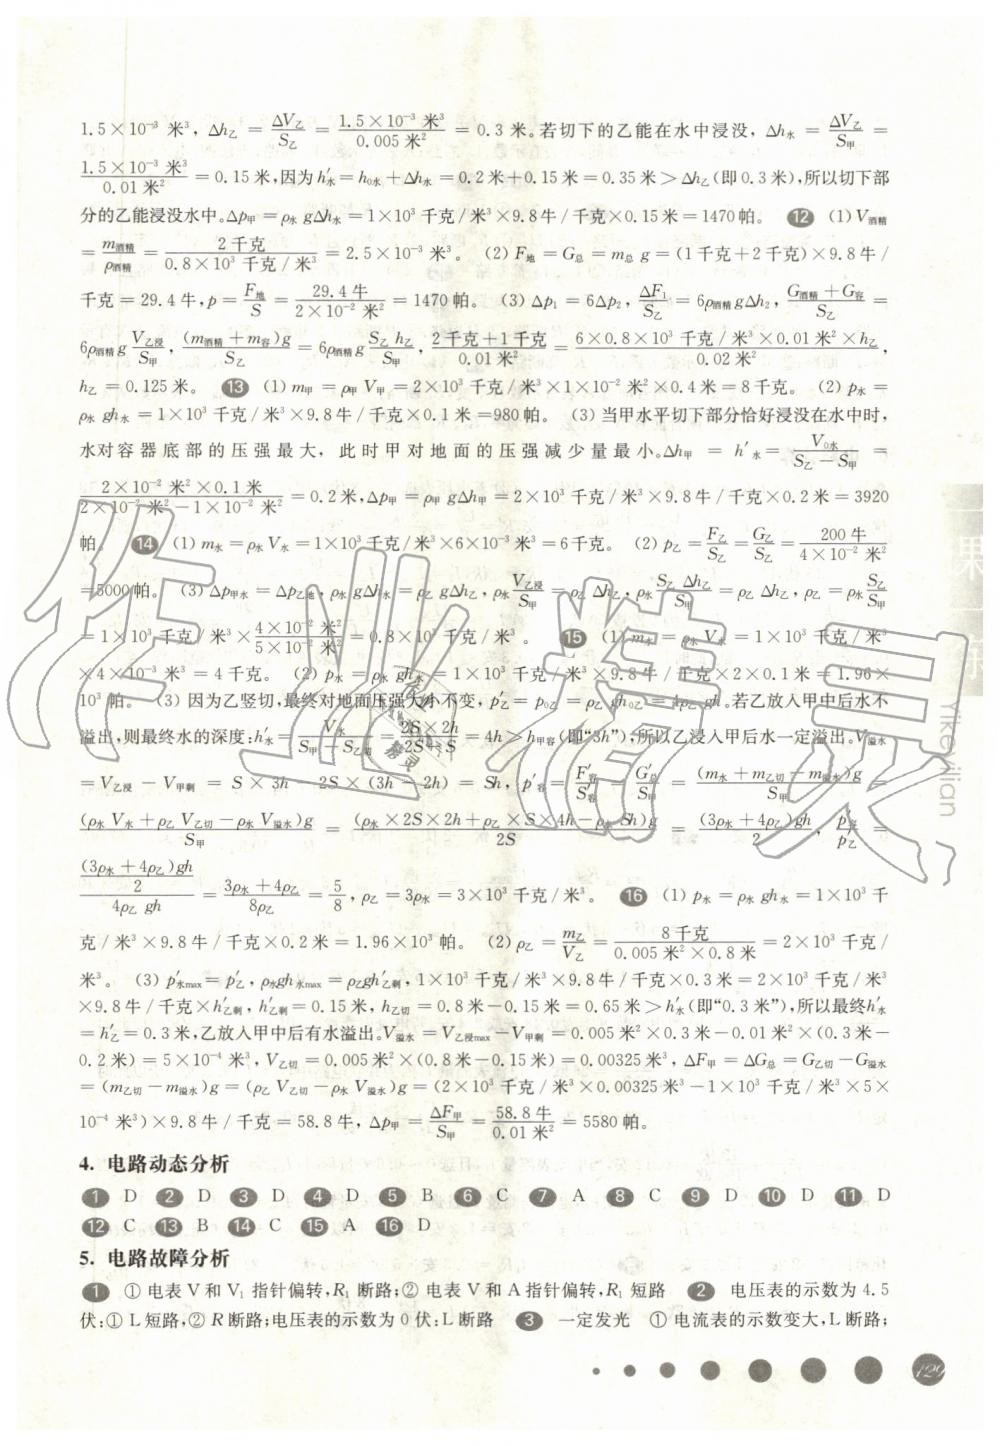 1.5×10⁻³ 米³，Δh乙 = ΔV乙/S乙 = 1.5×10⁻³ 米³/0.005 米² = 0.3 米。若切下的乙能在水中浸没，Δh水 = ΔV乙/S甲 =
1.5×10⁻³ 米³/0.01 米² = 0.15 米，因为 h′水 = h₀水 + Δh水 = 0.2 米+0.15 米 = 0.35 米 > Δh乙(即 0.3 米)，所以切下部
分的乙能浸没水中。Δp甲 = ρ水 gΔh水 = 1×10³ 千克/米³×9.8 牛/千克×0.15 米 = 1470 帕。 12 (1) V酒精
= m酒精/ρ酒精 = 2 千克/0.8×10³ 千克/米³ = 2.5×10⁻³ 米³。 (2) F地 = G总 = m总 g = (1 千克+2 千克)×9.8 牛/
千克 = 29.4 牛，p = F地/S = 29.4 牛/2×10⁻² 米² = 1470 帕。 (3) Δp₁ = 6Δp₂，ΔF₁/S乙 = 6ρ酒精 gΔh₂，G酒精+G容/S乙 =
6ρ酒精 g V乙浸/S甲，(m酒精+m容)g/S乙 = 6ρ酒精 g S乙 h乙/S甲，2 千克+1 千克/0.01 米² = 6×0.8×10³ 千克/米³×0.01 米²×h乙/0.02 米²，
h乙 = 0.125 米。 13 (1) m甲 = ρ甲 V甲 = 2×10³ 千克/米³×1×10⁻² 米²×0.4 米 = 8 千克。 (2) p水 =
ρ水 gh水 = 1×10³ 千克/米³×9.8 牛/千克×0.1 米 =980 帕。 (3) 当甲水平切下部分恰好浸没在水中时，
水对容器底部的压强最大，此时甲对地面的压强减少量最小。Δh甲 = h′水 = V₀水/S乙－S甲 =
2×10⁻² 米²×0.1 米/2×10⁻² 米²－1×10⁻² 米² = 0.2 米，Δp甲 = ρ甲 gΔh甲 = 2×10³ 千克/米³×9.8 牛/千克×0.2 米 = 3920
帕。 14 (1) m水 = ρ水 V水 = 1×10³ 千克/米³×6×10⁻³ 米³ = 6 千克。 (2) p乙 = F乙/S乙 = G乙/S乙 = 200 牛/4×10⁻² 米²
= 5000 帕。 (3) Δp甲水 = Δp乙地，ρ水 gΔh水 = ρ乙 gΔh乙，ρ水 V乙浸/S甲 = ρ乙 Δh乙，ρ水 S乙 Δh乙/S甲 = ρ乙 Δh乙，ρ乙 = ρ水 S乙/S甲
= 1×10³ 千克/米³×4×10⁻² 米²/5×10⁻² 米² = 0.8×10³ 千克/米³ 。 15 (1) m水 = ρ水 V水 = 1×10³ 千克/米³
×4×10⁻³ 米³ = 4 千克。 (2) p水 = ρ水 gh水 = 1×10³ 千克/米³×9.8 牛/千克×2×0.1 米 = 1.96×
10³ 帕。 (3) 因为乙竖切，最终对地面压强大小不变，p′乙 = p₀乙 = ρ乙 gh₀乙 = 4ρ乙 gh。若乙放入甲中后水不
溢出，则最终水的深度：h′水 = V水/S甲－S乙切 = 2S×2h/2S－S = 4h > h甲容(即“3h”)，所以乙浸入甲后水一定溢出。V溢水
= V乙浸－V甲剩 = S×3h－2S×(3h－2h) = Sh，p′容 = F′容/S容 = G′总/S容 = (m水+m乙切－m溢水)g/S甲 =
(ρ水 V水+ρ乙 V乙切－ρ水 V溢水)g/S甲 = (ρ水×2S×2h+ρ乙×S×4h－ρ水 Sh)g/2S = (3ρ水+4ρ乙)gh/2，p′容/p′乙 =
(3ρ水+4ρ乙)gh/2/4ρ乙 gh = 3ρ水+4ρ乙/8ρ乙 = 5/8，ρ乙 = 3ρ水 = 3×10³ 千克/米³。 16 (1) p水 = ρ水 gh水 = 1×10³ 千
克/米³×9.8 牛/千克×0.2 米 = 1.96×10³ 帕。 (2) ρ乙 = m乙/V乙 = 8 千克/0.005 米²×0.8 米 = 2×10³ 千克/
米³。 (3) p′水max = p′乙，ρ水gh水max = ρ乙gh′乙剩，1×10³ 千克/米³×9.8 牛/千克×0.3 米 = 2×10³ 千克/米³
×9.8 牛/千克×h′乙剩，h′乙剩 = 0.15 米，h乙切 = 0.8 米－0.15 米 = 0.65 米 > h′水(即“0.3 米”)，所以最终 h′水
= h′乙 = 0.3 米，乙放入甲中后有水溢出。V溢水 = V乙浸max－V甲剩 = 0.005 米²×0.3 米－0.01 米²×(0.3 米－
0.2 米) = 5×10⁻⁴ 米³，V乙切 = 0.005 米²×(0.8 米－0.15 米) = 0.00325 米³，ΔF甲 = ΔG总 = G乙切－G溢水
= (m乙切－m溢水)g = (ρ乙 V乙切－ρ水 V溢水)g = (2×10³ 千克/米³×0.00325 米³－1×10³ 千克/米³×5×
10⁻⁴ 米³)×9.8 牛/千克 = 58.8 牛，Δp甲 = ΔF甲/S甲 = 58.8 牛/0.01 米² = 5580 帕。
4. 电路动态分析
1 D 2 D 3 D 4 D 5 B 6 C 7 A 8 C 9 D 10 D 11 D
12 C 13 B 14 C 15 A 16 D
5. 电路故障分析
1 ① 电表 V 和 V₁ 指针偏转，R₁ 断路；② 电表 V 和 A 指针偏转，R₁ 短路 2 电压表的示数为 4.5
伏：① L 短路，② R 断路；电压表的示数为 0 伏：L 断路 3 一定发光 ① 电流表的示数变大，L 断路；
129
一课一练
Yikeyilian
作业精灵